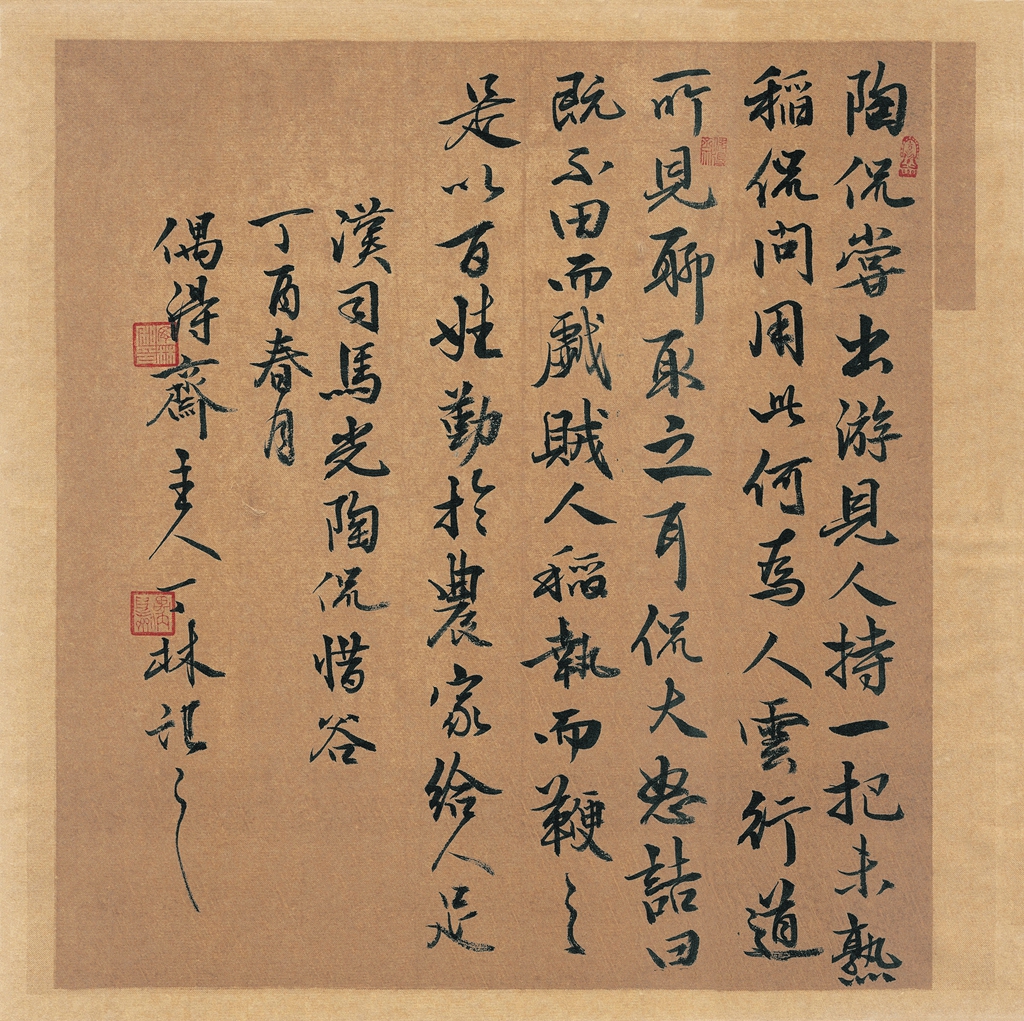 陶侃嘗出游見人持一把未熟
稻侃問用此何為人雲行道
所見聊取之耳侃大怒詰曰
既不田而戲賊人稻執而鞭之
是以百姓勤於農家給人足
漢司馬光陶侃惜谷
丁酉春月
偶得齋主人丁林記之